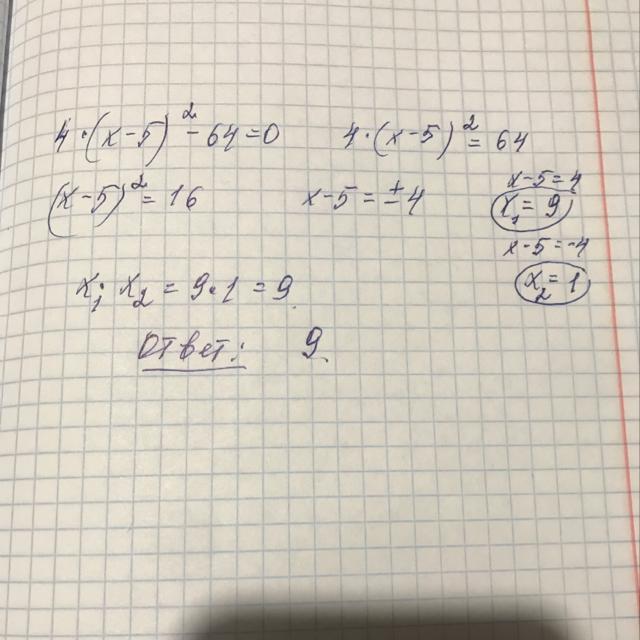 4·(x-5)² - 64 = 0    4·(x-5)² = 64
(x-5)² = 16    x-5 = ±4    x-5 = 4
x₁ = 9
x-5 = -4
x₂ = 1
x₁·x₂ = 9·1 = 9.
Ответ: 9.